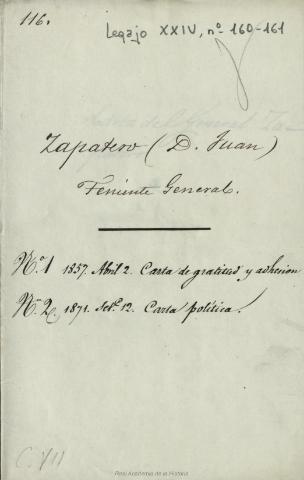 116.
Legajo XXIV, nº 160-161
Zapatero (D. Juan)
Teniente General.
Nº 1 1857. Abril 2. Carta de gratitud y adhesion
Nº 2, 1871. Set.e 12. Carta política.
Real Academia de la Historia